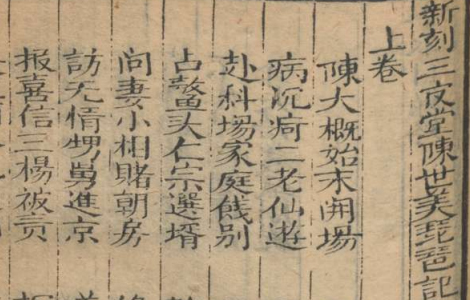 新刻三夜堂陳世美琵琶記
上卷
陳大概始末開場
病沉疴二老仙遊
赴科場家庭餞别
占鳌头仁宗選壻
问妻小相賭朝房
訪无情甥舅進京
报喜信三楊被责